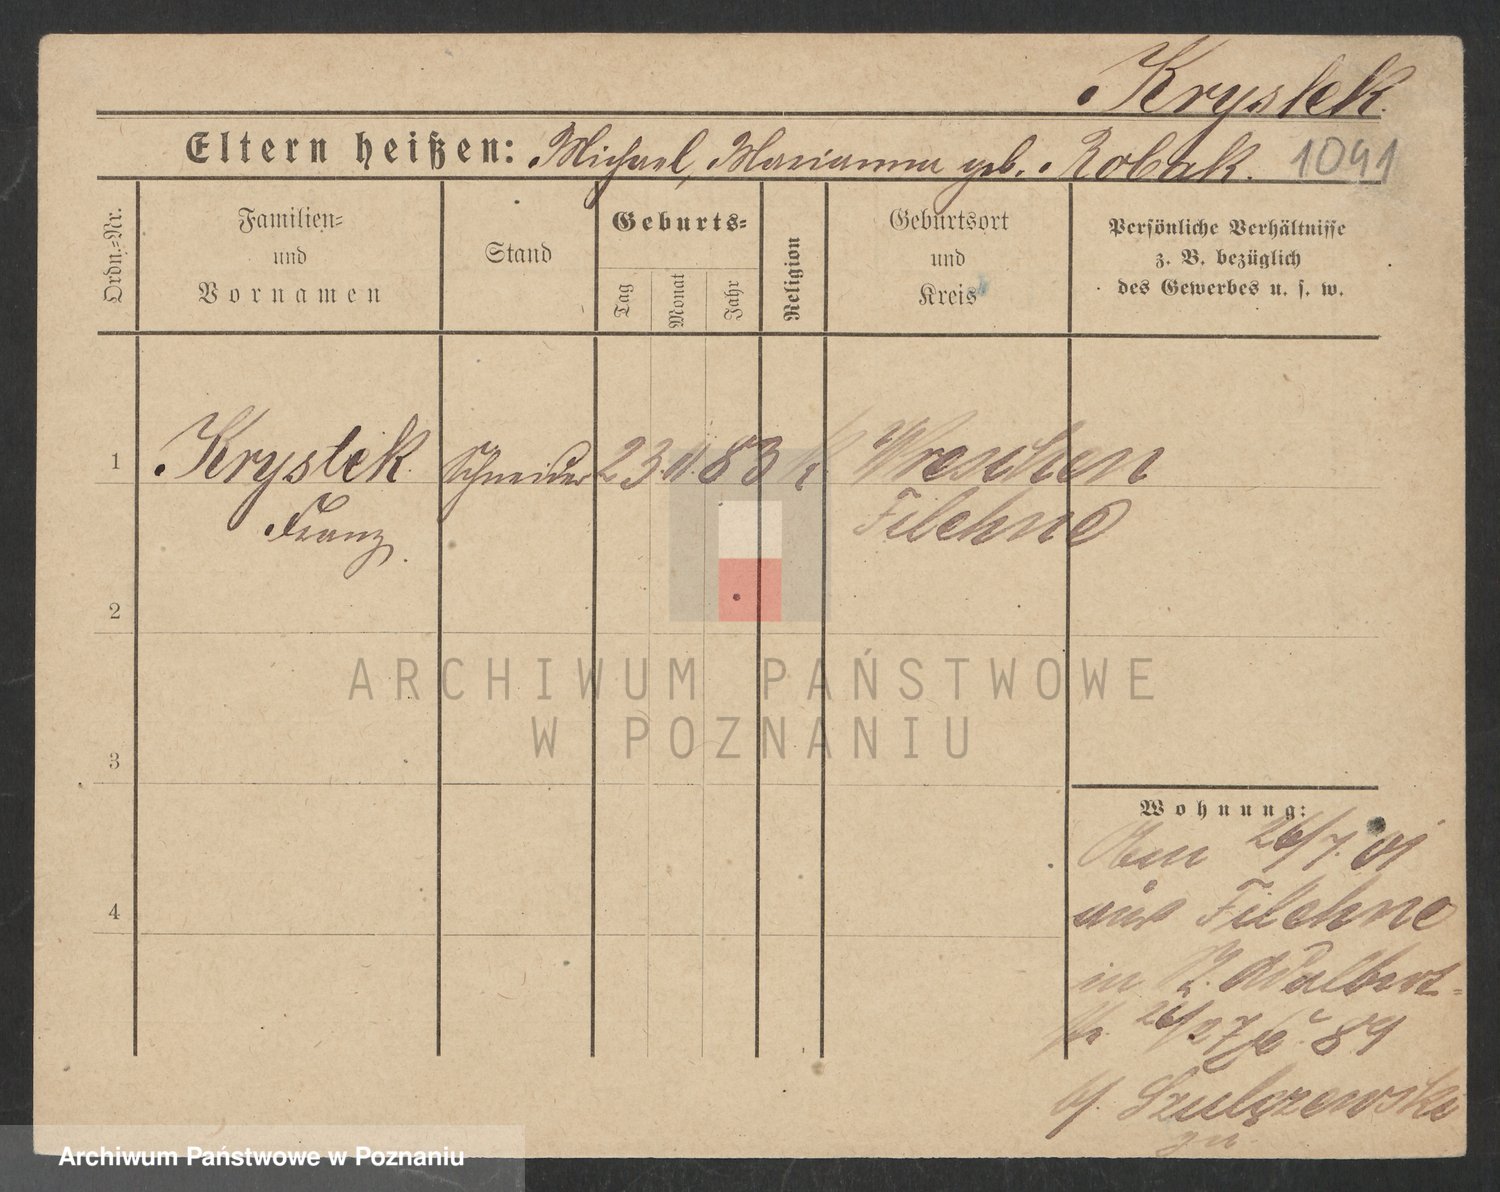 Krystek.
Eltern heißen: Michael, Marianna geb. Robak. 1091
Ordn.=Nr.
Familien=
und
Vornamen
Stand
Geburts=
Tag
Monat
Jahr
Religion
Geburtsort
und
Kreis
Persönliche Verhältnisse
z. B. bezüglich
des Gewerbes u. s. w.
1 Krystek Schneider 23.11.83 k Wreschen
Franz. Filehne
2
3
4
ARCHIWUM PAŃSTWOWE
W POZNANIU
Wohnung:
26/7. 01
aus Filehne
in Adalbert=
26/27 89
b/. Szulczewski
zu.
Archiwum Państwowe w Poznaniu